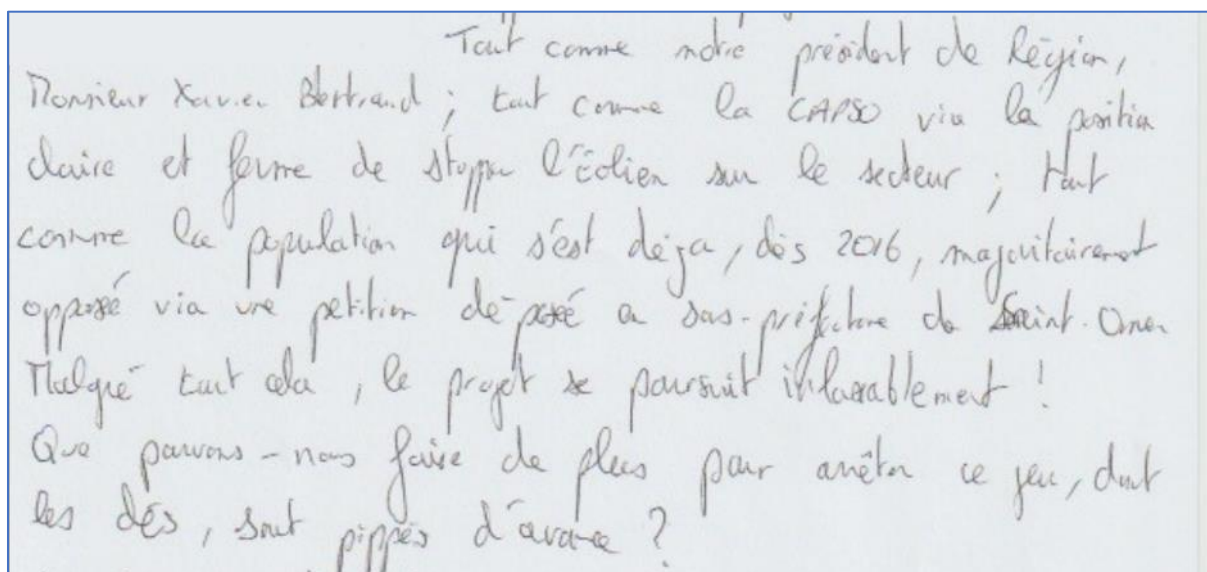 Tout comme notre président de Région,
Monsieur Xavier Bertrand ; tout comme la CAPSO via la position
claire et ferme de stopper l'Éolien sur le secteur ; tout
comme la population qui s'est déja, dès 2016, majoritairement
opposé via une petition déposé en sous-préfecture de Saint-Omer
Malgré tout cela, le projet se poursuit inlassablement !
Que pouvons-nous faire de plus pour arrêter ce jeu, dont
les dés, sont pippés d'avance ?